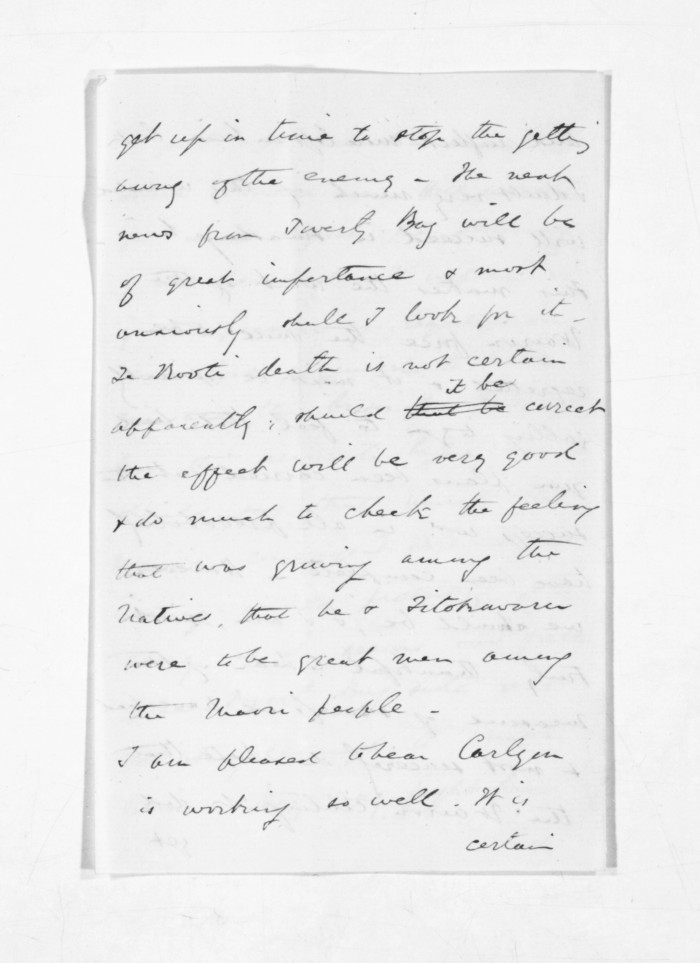 get up in time to stop the getting
away of the enemy – The next
news from Poverty Bay will be
of great importance & most
anxiously shall I look for it –
Te Kooti death is not certain
apparently, should that be it be correct
the effect will be very good
& do much to check the feeling
that was growing among the
Natives, that he & Titokowaru
were to be great men among
the Maori people –
I am pleased to hear
is working so well. It is
certain